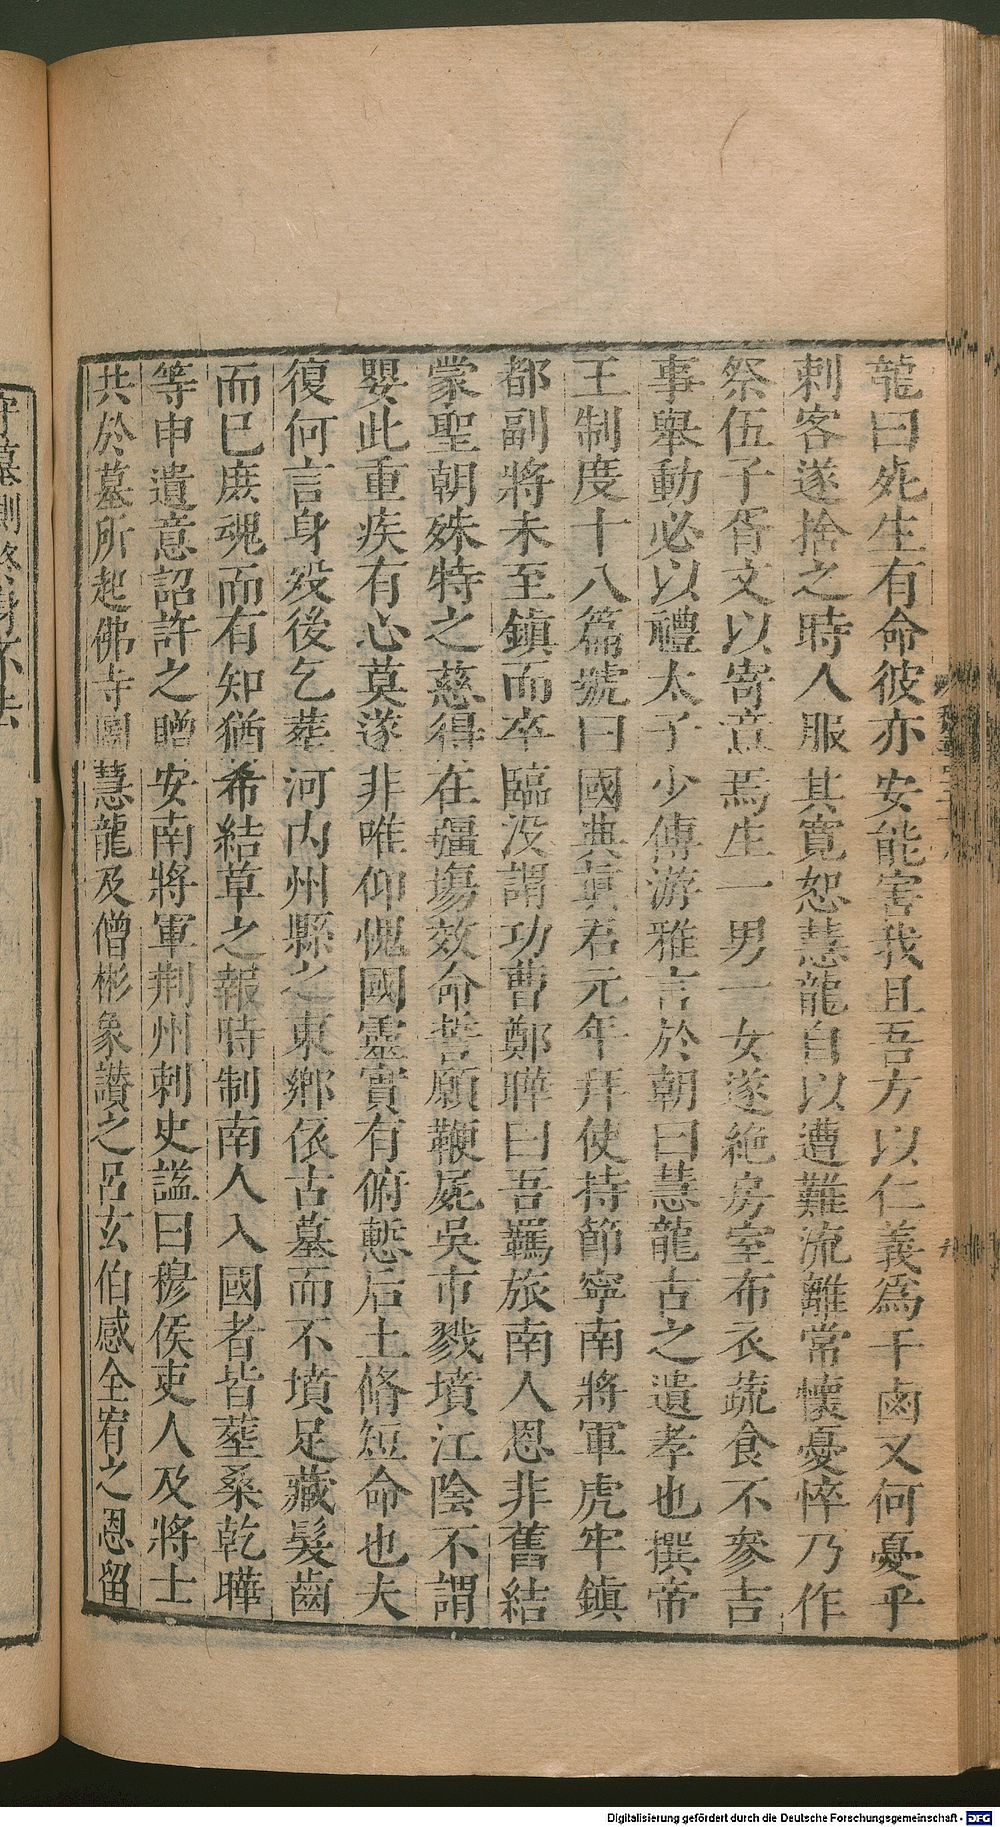 龍曰死生有命彼亦安能害我且吾方以仁義爲干鹵又何憂乎
刺客遂捨之時人服其寬恕慧龍自以遭難流離常懷憂悴乃作
祭伍子胥文以寄意焉生一男一女遂絶房室布衣蔬食不參吉
事舉動必以禮太子少傅游雅言於朝曰慧龍古之遺孝也撰帝
王制度十八篇號曰國典眞君元年拜使持節寧南將軍虎牢鎮
都副將未至鎮而卒臨没謂功曹鄭曄曰吾羈旅南人恩非舊結
蒙聖朝殊特之慈得在疆塲效命誓願鞭屍吳市戮墳江陰不謂
嬰此重疾有心莫遂非唯仰愧國靈實有俯慙后土脩短命也夫
復何言身歿後乞葬河内州縣之東鄉依古墓而不墳足藏髮齒
而已庶魂而有知猶希結草之報時制南人入國者皆葬桑乾曄
等申遺意詔許之贈安南將軍荆州刺史諡曰穆侯吏人及將士
共於墓所起佛寺圖慧龍及僧彬象讃之呂玄伯感全宥之恩留
守墓側終身不去
Digitalisierung gefördert durch die Deutsche Forschungsgemeinschaft - DFG